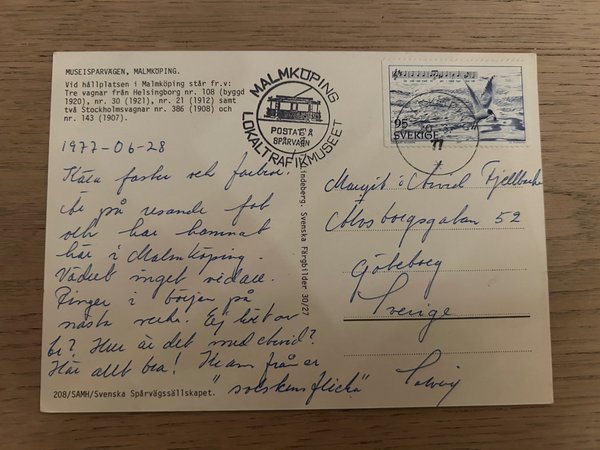 MUSEISPARVÄGEN, MALMKÖPING.
Vid hållplatsen i Malmköping står fr.v:
Tre vagnar från Helsingborg nr. 108 (byggd
1920), nr. 30 (1921), nr. 21 (1912) samt
två Stockholmsvagnar nr. 386 (1908) och
nr. 143 (1907).
MALMKÖPING
POSTAT Å
SPÅRVAGN
LOKALTRAFIKMUSEET
95
SVERIGE
77
1977-06-28
Kära faster och farbror.
på resande fot
och har hamnat
här i Malmköping.
Vädret inget vidare.
Ringer i början på
nästa vecka.
Hur är det med Arvid?
Här allt bra! Kram från er
"solskensflicka" Solveig
Margit o Arvid Fjellbacke
Älvsborgsgatan 52
Göteborg
Sverige
Lindeberg. Svenska Färgbilder 30/27
208/SAMH/Svenska Spårvägssällskapet.